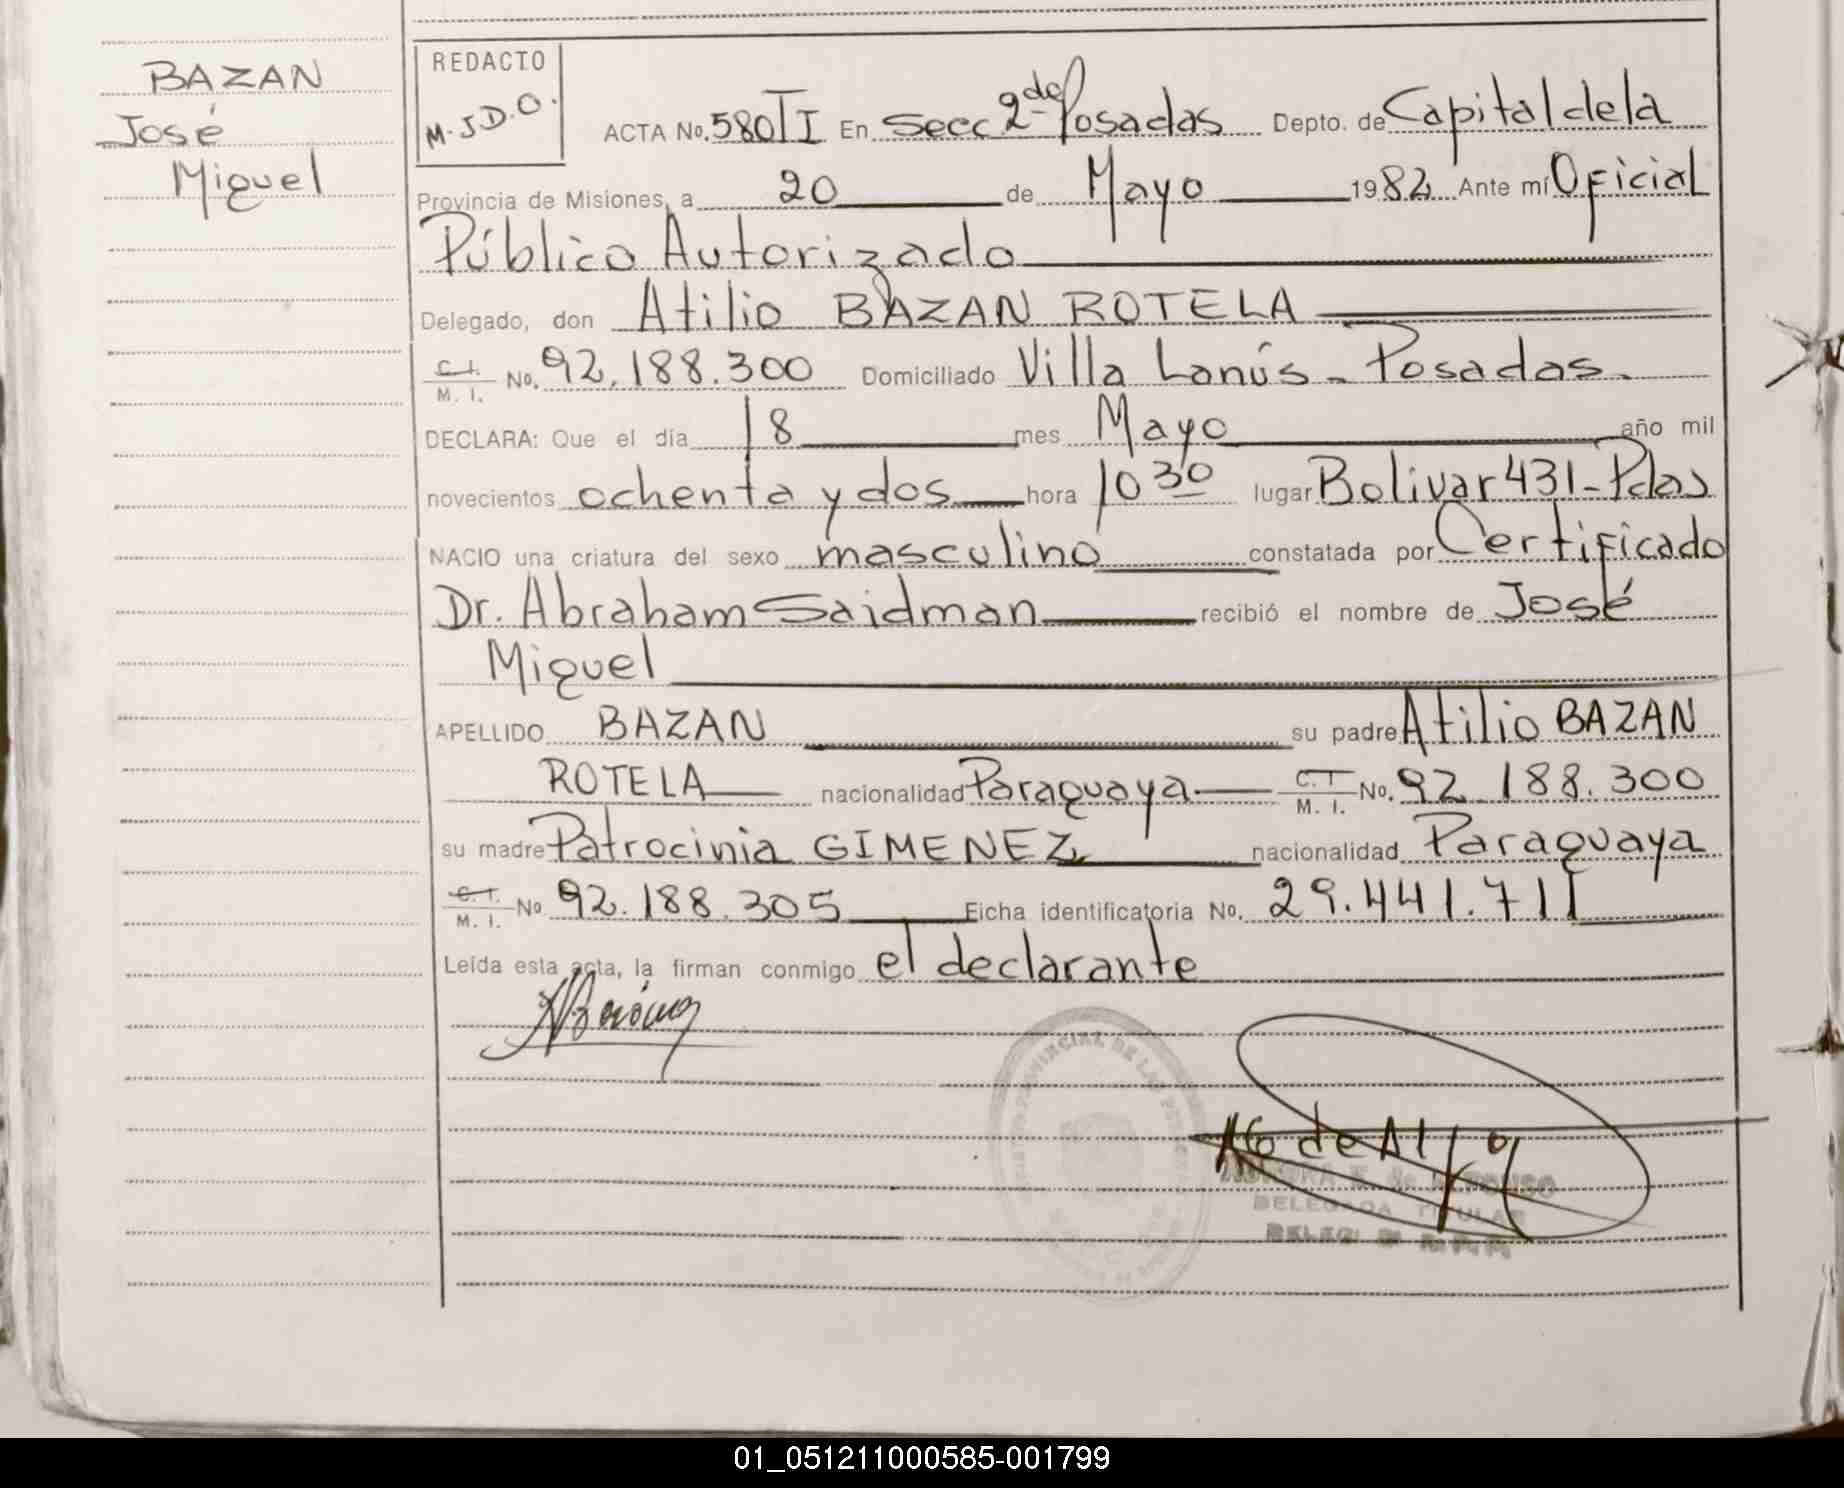 BAZAN
José
Miguel
REDACTO
M.J.D.O.
ACTA No. 580 TI En Secc 2da de Posadas Depto. de Capital de la
Provincia de Misiones, a 20 de Mayo 1982 Ante mí Oficial
Público Autorizado
Delegado, don Atilio BAZAN ROTELA
C.I. M. I. No. 92.188.300 Domiciliado Villa Lanús - Posadas.
DECLARA: Que el día 18 mes Mayo año mil
novecientos ochenta y dos hora 10 30 lugar Bolivar 431 - Pdas
NACIO una criatura del sexo masculino constatada por Certificado
Dr. Abraham Saidman recibió el nombre de José
Miguel
APELLIDO BAZAN su padre Atilio BAZAN
ROTELA nacionalidad Paraguaya C.I. M. I. No. 92.188.300
su madre Patrocinia GIMENEZ nacionalidad Paraguaya
C.I. M. I. No 92.188.305 Ficha identificatoria No. 29.441.711
Leída esta acta, la firman conmigo el declarante
REGISTRO PROVINCIAL DE LAS PERSONAS
E. de ALFONSO
DELEGADA TITULAR
01_051211000585-001799